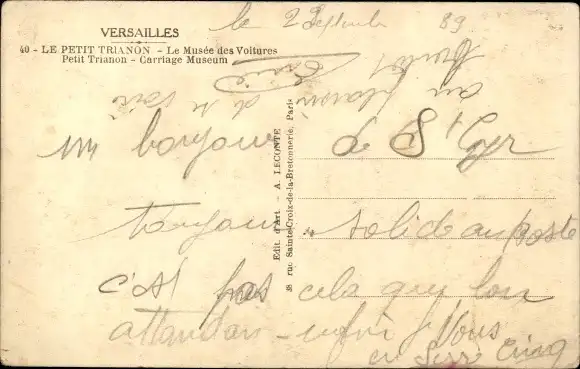 VERSAILLES
40 - LE PETIT TRIANON - Le Musée des Voitures
Petit Trianon - Carriage Museum
le 2 Septembre 39
au plaisir
de te voir
un bonjour de St Cyr
toujours solide au poste
c'est pas cela que l'on
attendais - enfin Vous
en serre cinq
Edit. d'Art - A. LECONTE
38 rue Sainte-Croix-de-la-Bretonnerie, Paris